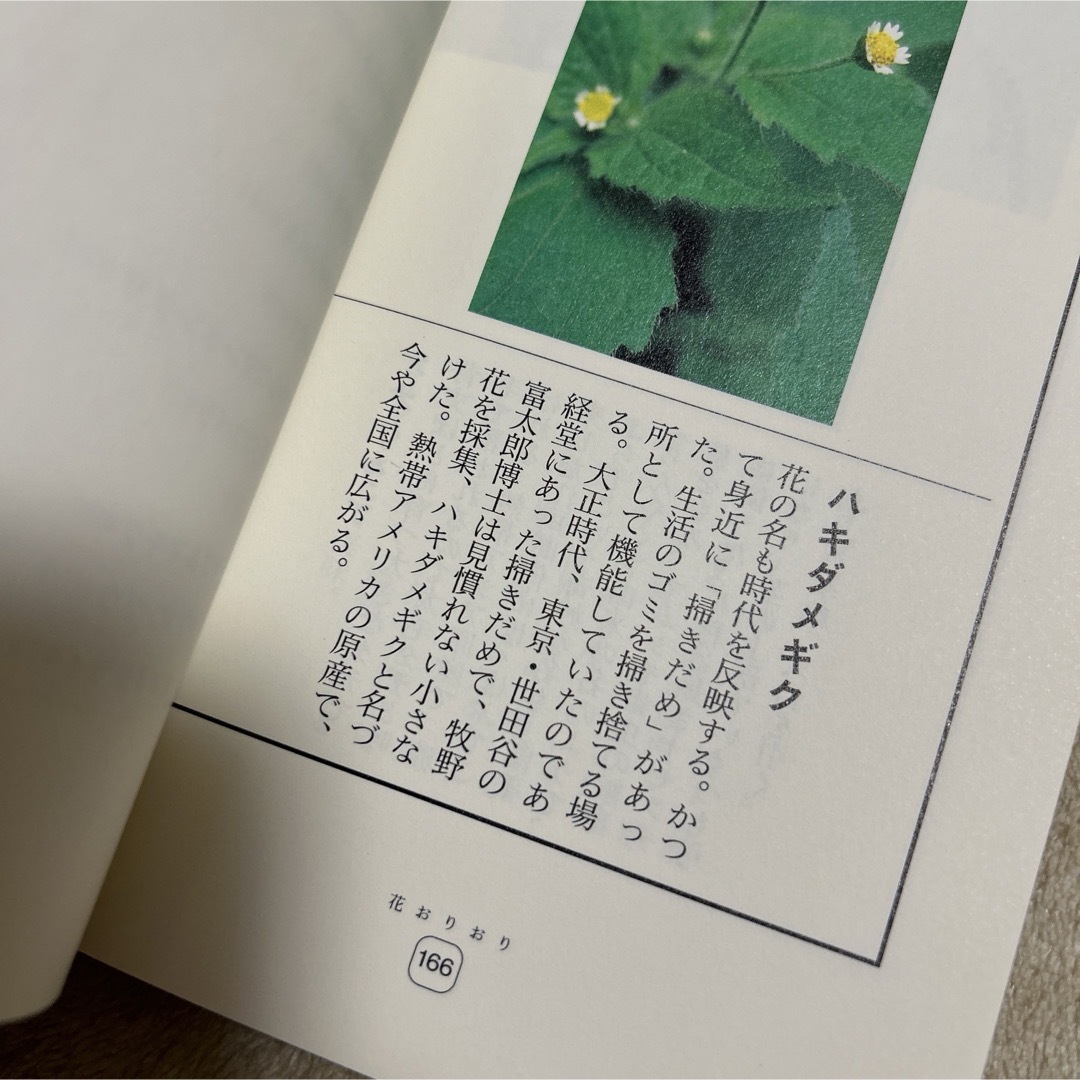 ハキダメギク
花の名も時代を反映する。かつ
て身近に「掃きだめ」があっ
た。生活のゴミを掃き捨てる場
所として機能していたのであ
る。大正時代、東京・世田谷の
経堂にあった掃きだめで、牧野
富太郎博士は見慣れない小さな
花を採集、ハキダメギクと名づ
けた。熱帯アメリカの原産で、
今や全国に広がる。
花おりおり
166